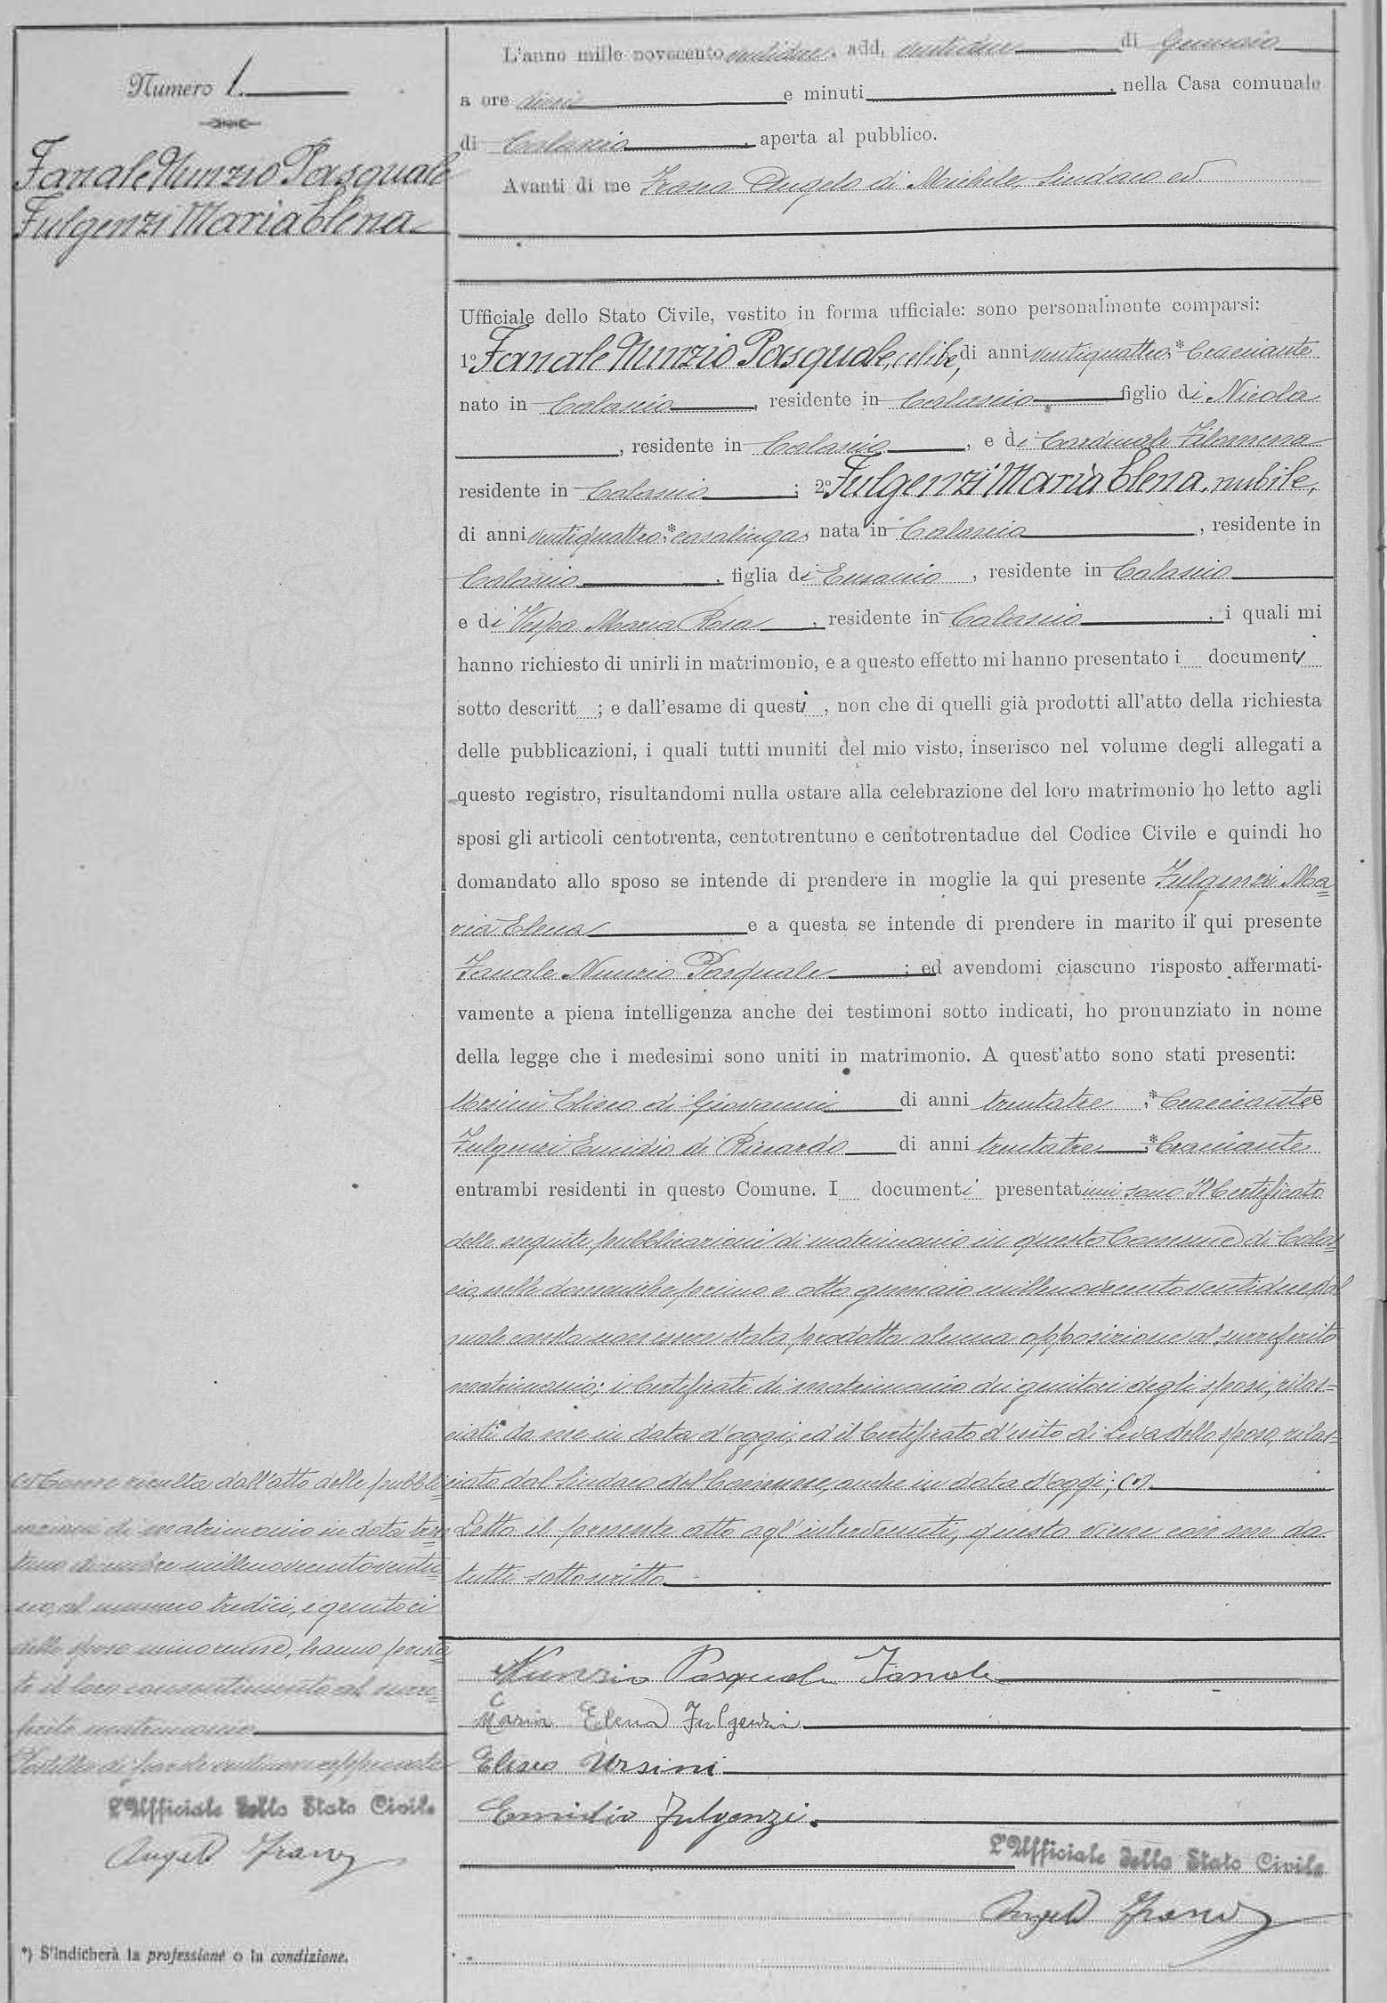 Numero 1.
Fanale Nunzio Pasquale
Fulgenzi Maria Elena
L'anno mille novecento ventidue, add, ventidue di Gennaio
a ore dieci e minuti , nella Casa comunale
di Calascio, aperta al pubblico.
Avanti di me Frasca Angelo di Michele, Sindaco ed
Ufficiale dello Stato Civile, vestito in forma ufficiale: sono personalmente comparsi:
1º Fanale Nunzio Pasquale, celibe, di anni ventiquattro,* bracciante
nato in Calascio, residente in Calascio, figlio di Nicola
, residente in Calascio, e di Cardinale Filomena
residente in Calascio; 2º Fulgenzi Maria Elena, nubile,
di anni ventiquattro,* casalinga, nata in Calascio, residente in
Calascio, figlia di Eusanio, residente in Calascio
e di Vespa Maria Rosa, residente in Calascio, i quali mi
hanno richiesto di unirli in matrimonio, e a questo effetto mi hanno presentato i documenti
sotto descritt ; e dall'esame di questi , non che di quelli già prodotti all'atto della richiesta
delle pubblicazioni, i quali tutti muniti del mio visto, inserisco nel volume degli allegati a
questo registro, risultandomi nulla ostare alla celebrazione del loro matrimonio ho letto agli
sposi gli articoli centotrenta, centotrentuno e centotrentadue del Codice Civile e quindi ho
domandato allo sposo se intende di prendere in moglie la qui presente Fulgenzi Ma=
ria Elena e a questa se intende di prendere in marito il qui presente
Fanale Nunzio Pasquale; ed avendomi ciascuno risposto affermati-
vamente a piena intelligenza anche dei testimoni sotto indicati, ho pronunziato in nome
della legge che i medesimi sono uniti in matrimonio. A quest'atto sono stati presenti:
Ursini Eliseo di Giovanni di anni trentatre,* bracciante e
Fulgenzi Emidio di Riccardo di anni trentatre,* bracciante
entrambi residenti in questo Comune. I documenti presentatimi sono Il certificato
delle eseguite pubblicazioni di matrimonio in questo Comune di Calas=
cio, nelle domeniche primo e otto gennaio millenovecentoventidue, dal
quale consta non essere stata prodotta alcuna opposizione al surriferito
matrimonio; i Certificati di matrimonio dei genitori degli sposi, rilas=
ciati da me in data d'oggi; ed il Certificato d'esito di Leva dello sposo, rilas=
ciato dal Sindaco del Comune, anche in data d'oggi;
Letto il presente atto agl'intervenuti, questo viene con me da
tutti sottoscritto
Come risulta dall'atto delle pubbli=
cazioni di matrimonio in data tren=
tuno dicembre millenovecentoventu=
no, al numero tredici, i genitori
dello sposo minorenne, hanno presta=
to il loro consentimento al surre=
ferito matrimonio
Postilla di parole ventinove approvata
L'Ufficiale dello Stato Civile
*) S'indicherà la professione o la condizione.
Nunzio Pasquale Fanale
Maria Elena Fulgenzi
Eliseo Ursini
Emidio Fulgenzi.
L'Ufficiale dello Stato Civile